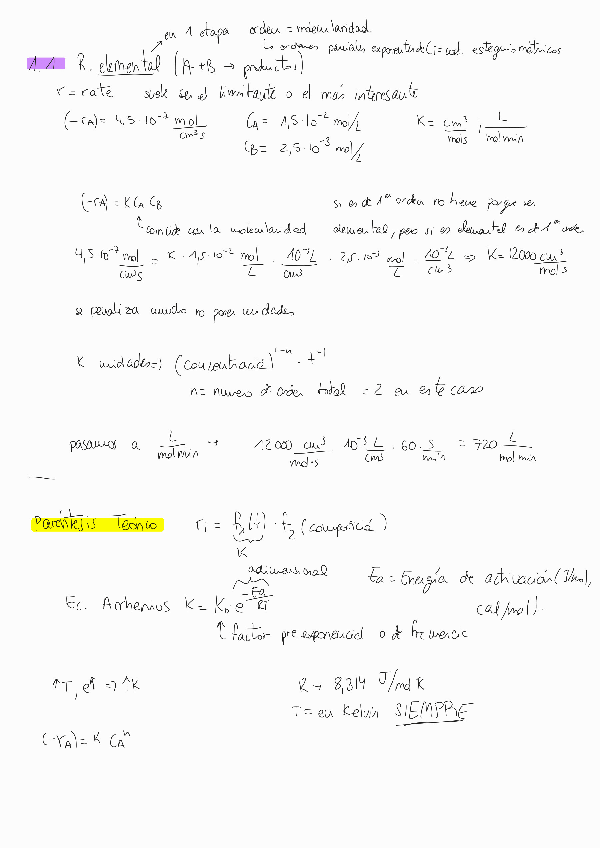 en 1 etapa orden = molecularidad
↳ ordenes parciales exponentes de Ci = coef. estequiométricos
1.1 R. elemental (A + B → productos)
r = rate suele ser el limitante o el más interesante
(-rA) = 4,5·10⁻⁷ mol/cm³s CA = 1,5·10⁻² mol/L K = cm³/mol s , L/mol min
CB = 2,5·10⁻³ mol/L
(-rA) = K CA CB si es de 1er orden no tiene porque ser
↑ coincide con la molecularidad elemental, pero si es elemental es de 1er orden
4,5·10⁻⁷ mol/cm³s = K · 1,5·10⁻² mol/L · 10⁻³L/cm³ · 2,5·10⁻³ mol/L 10⁻³L/cm³ ⇒ K = 12000 cm³/mol s
se penaliza mucho no poner unidades
K unidades ⇒ (concentración)¹⁻ⁿ · t⁻¹
n = numero de orden total = 2 en este caso
pasamos a L/mol min → 12000 cm³/mol·s 10⁻³ L/cm³ · 60 s/min = 720 L/mol min
Paréntesis Teórico ri = f₁(T) · f₂(composició)
K
adimensional
Ec. Arrhenius K = K₀ e^(-Ea/RT) Ea = Energía de activación (J/mol,
cal/mol).
↑ factor preexponencial o de frecuencia
↑T, e^↑ ⇒ ↑K R → 8,314 J/mol K
T = en Kelvin SIEMPRE
(-rA) = K CAⁿ